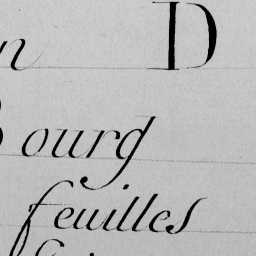 n D
ourg
feuilles